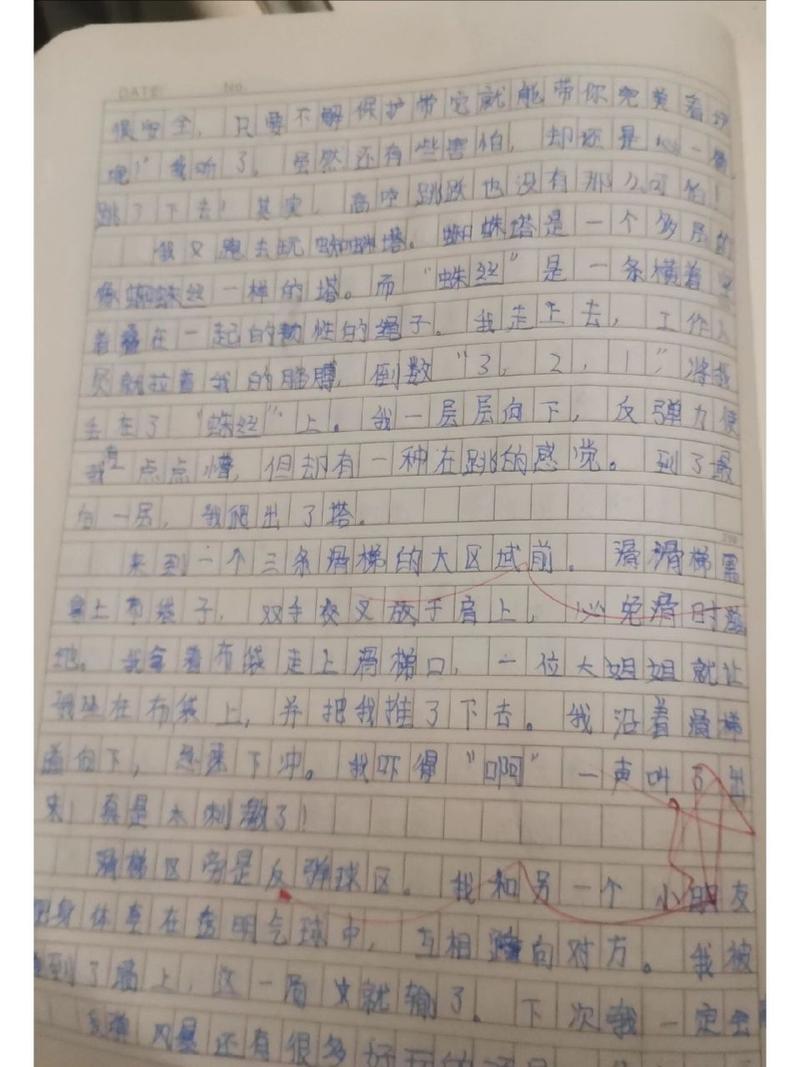 DATE: No.
很安全，只要不解保护带它就能带你完美着
吧！"我听了，虽然还有些害怕，却还是心一
跳了下去！其实，高空跳跃也没有那么可怕！
我又跑去玩蜘蛛塔。蜘蛛塔是一个多层的
像蜘蛛丝一样的塔。而"蛛丝"是一条横着
着叠在一起的韧性的绳子。我走上去，工作人
员就拉着我的胳膊，倒数"3，2，1，"将我
丢在了"蛛丝"上。我一层层向下，反弹力使
我有点点懵，但却有一种在跳的感觉。到了最
后一层，我爬出了塔。
来到一个三条滑梯的大区域前。滑滑梯需
拿上布袋子，双手交叉放于肩上，以免滑时
地。我拿着布袋走上滑梯口，一位大姐姐就让
我坐在布袋上，并把我推了下去。我沿着滑梯
面向下，急速下冲。我吓得"啊"一声叫了出
来！真是太刺激了！
滑梯区旁是反弹球区。我和另一个小朋友
身体套在透明气球中，互相撞向对方。我被
到了墙上，这一局就输了。下次我一定会
风暴还有很多好玩的